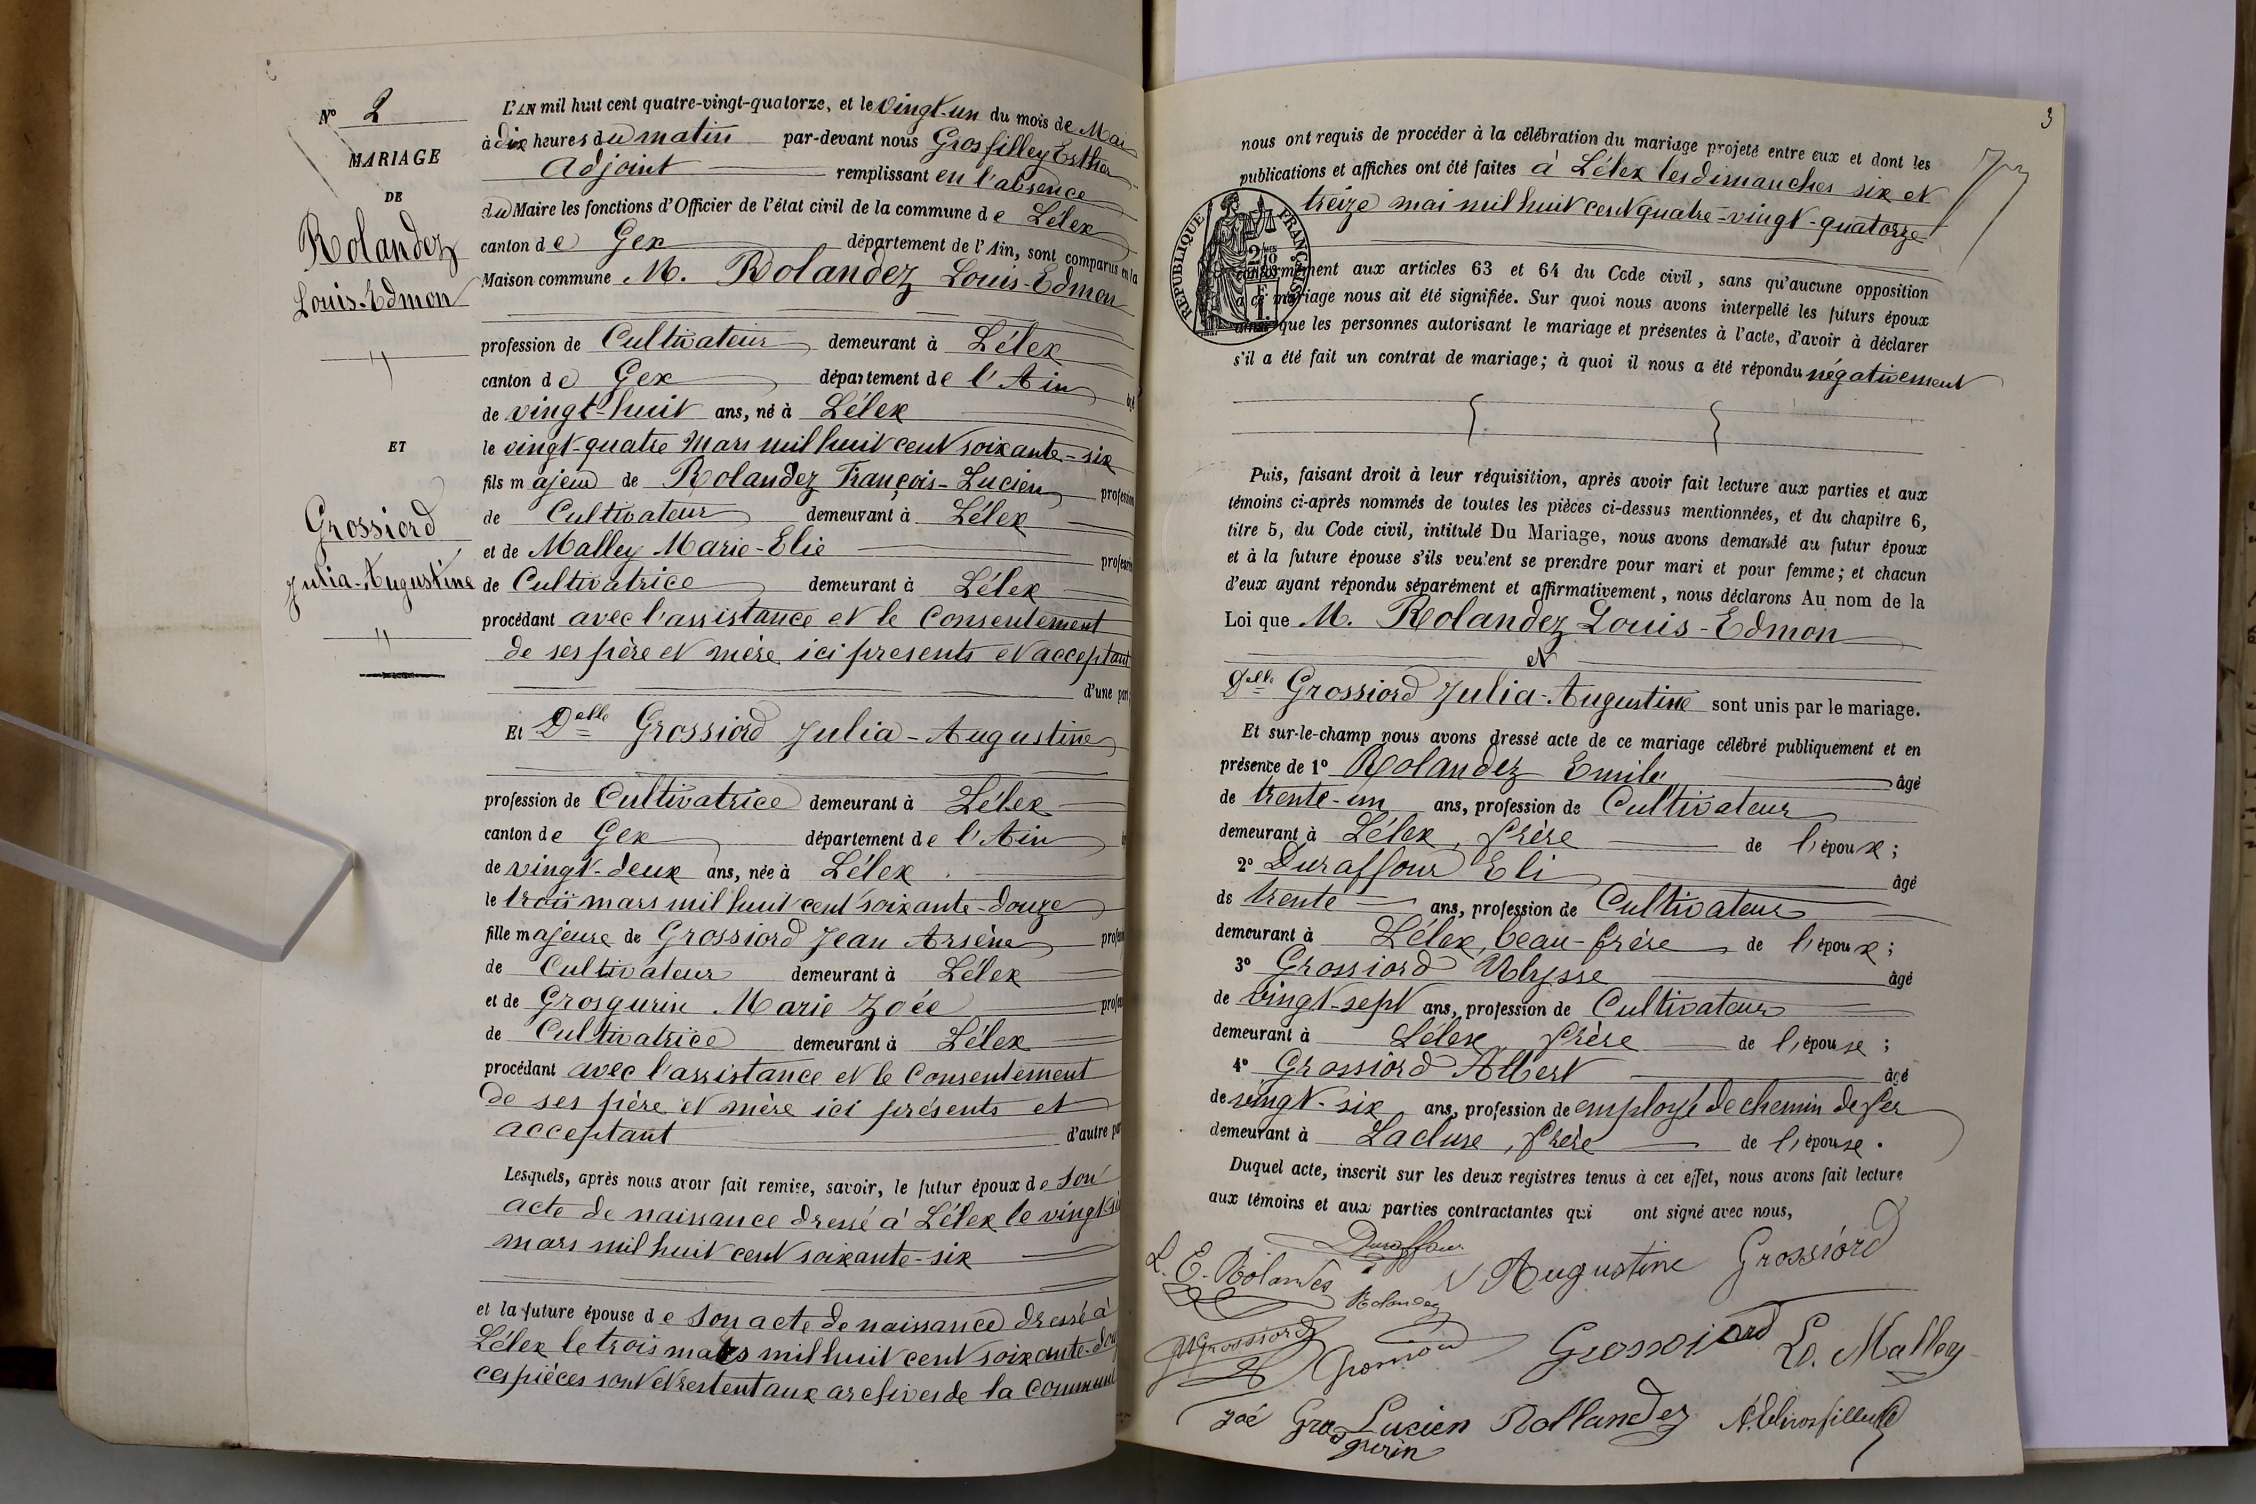 Nº 2
MARIAGE
DE
Rolandez
Louis-Edmon
ET
Grossiord
Julia-Augustine
L'AN mil huit cent quatre-vingt-quatorze, et le vingt-un du mois de Mai
à dix heures du matin par-devant nous Grosfilley Esther
Adjoint remplissant en l'absence
du Maire les fonctions d'Officier de l'état civil de la commune de Lélex
canton de Gex département de l'Ain, sont comparus en la
Maison commune M. Rolandez Louis-Edmon
profession de Cultivateur demeurant à Lélex
canton de Gex département de l'Ain âgé
de vingt-huit ans, né à Lélex
le vingt-quatre Mars mil huit cent soixante-six
fils majeur de Rolandez François-Lucien profession
de Cultivateur demeurant à Lélex
et de Malley Marie-Elie profession
de Cultivatrice demeurant à Lélex
procédant avec l'assistance et le Consentement
de ses père et mère ici presents et acceptant
d'une part
Et Delle Grossiord Julia-Augustine
profession de Cultivatrice demeurant à Lélex
canton de Gex département de l'Ain
de vingt-deux ans, née à Lélex
le trois mars mil huit cent soixante-douze
fille majeure de Grossiord Jean Arsène profes
de Cultivateur demeurant à Lélex
et de Grosgurin Marie Zoée profes
de Cultivatrice demeurant à Lélex
procédant avec l'assistance et le Consentement
de ses père et mère ici présents et
acceptant d'autre par
Lesquels, après nous avoir fait remise, savoir, le futur époux de son
acte de naissance dressé à Lélex le
mars mil huit cent soixante-six
et la future épouse de son acte de naissance dressé à
Lélex le trois mars mil huit cent soixante-dou
ces pièces sont et restent aux archives de la Commune
3
nous ont requis de procéder à la célébration du mariage projeté entre eux et dont les
publications et affiches ont été faites à Lélex les dimanches six et
treize mai mil huit cent quatre-vingt-quatorze
RÉPUBLIQUE FRANÇAISE
conformément aux articles 63 et 64 du Code civil, sans qu'aucune opposition
à ce mariage nous ait été signifiée. Sur quoi nous avons interpellé les futurs époux
ainsi que les personnes autorisant le mariage et présentes à l'acte, d'avoir à déclarer
s'il a été fait un contrat de mariage; à quoi il nous a été répondu négativement
Puis, faisant droit à leur réquisition, après avoir fait lecture aux parties et aux
témoins ci-après nommés de toutes les pièces ci-dessus mentionnées, et du chapitre 6,
titre 5, du Code civil, intitulé Du Mariage, nous avons demandé au futur époux
et à la future épouse s'ils veulent se prendre pour mari et pour femme; et chacun
d'eux ayant répondu séparément et affirmativement, nous déclarons Au nom de la
Loi que M. Rolandez Louis-Edmon
et
Delle Grossiord Julia-Augustine sont unis par le mariage.
Et sur-le-champ nous avons dressé acte de ce mariage célébré publiquement et en
présence de 1º Rolandez Emile âgé
de trente-un ans, profession de Cultivateur
demeurant à Lélex, frère de l'époux;
2º Duraffour Eli âgé
de trente ans, profession de Cultivateur
demeurant à Lélex, beau-frère de l'époux;
3º Grossiord Ulysse âgé
de vingt-sept ans, profession de Cultivateur
demeurant à Lélex, frère de l'épouse;
4º Grossiord Albert âgé
de vingt-six ans, profession de employé de chemin de fer
demeurant à Lacluse, frère de l'épouse.
Duquel acte, inscrit sur les deux registres tenus à cet effet, nous avons fait lecture
aux témoins et aux parties contractantes qui ont signé avec nous,
Duraffour
L. E. Rolandez Augustine Grossiord
Rolandez
Grossiord Grossiord L. Malley
Zoé Grosgurin Lucien Rollandez